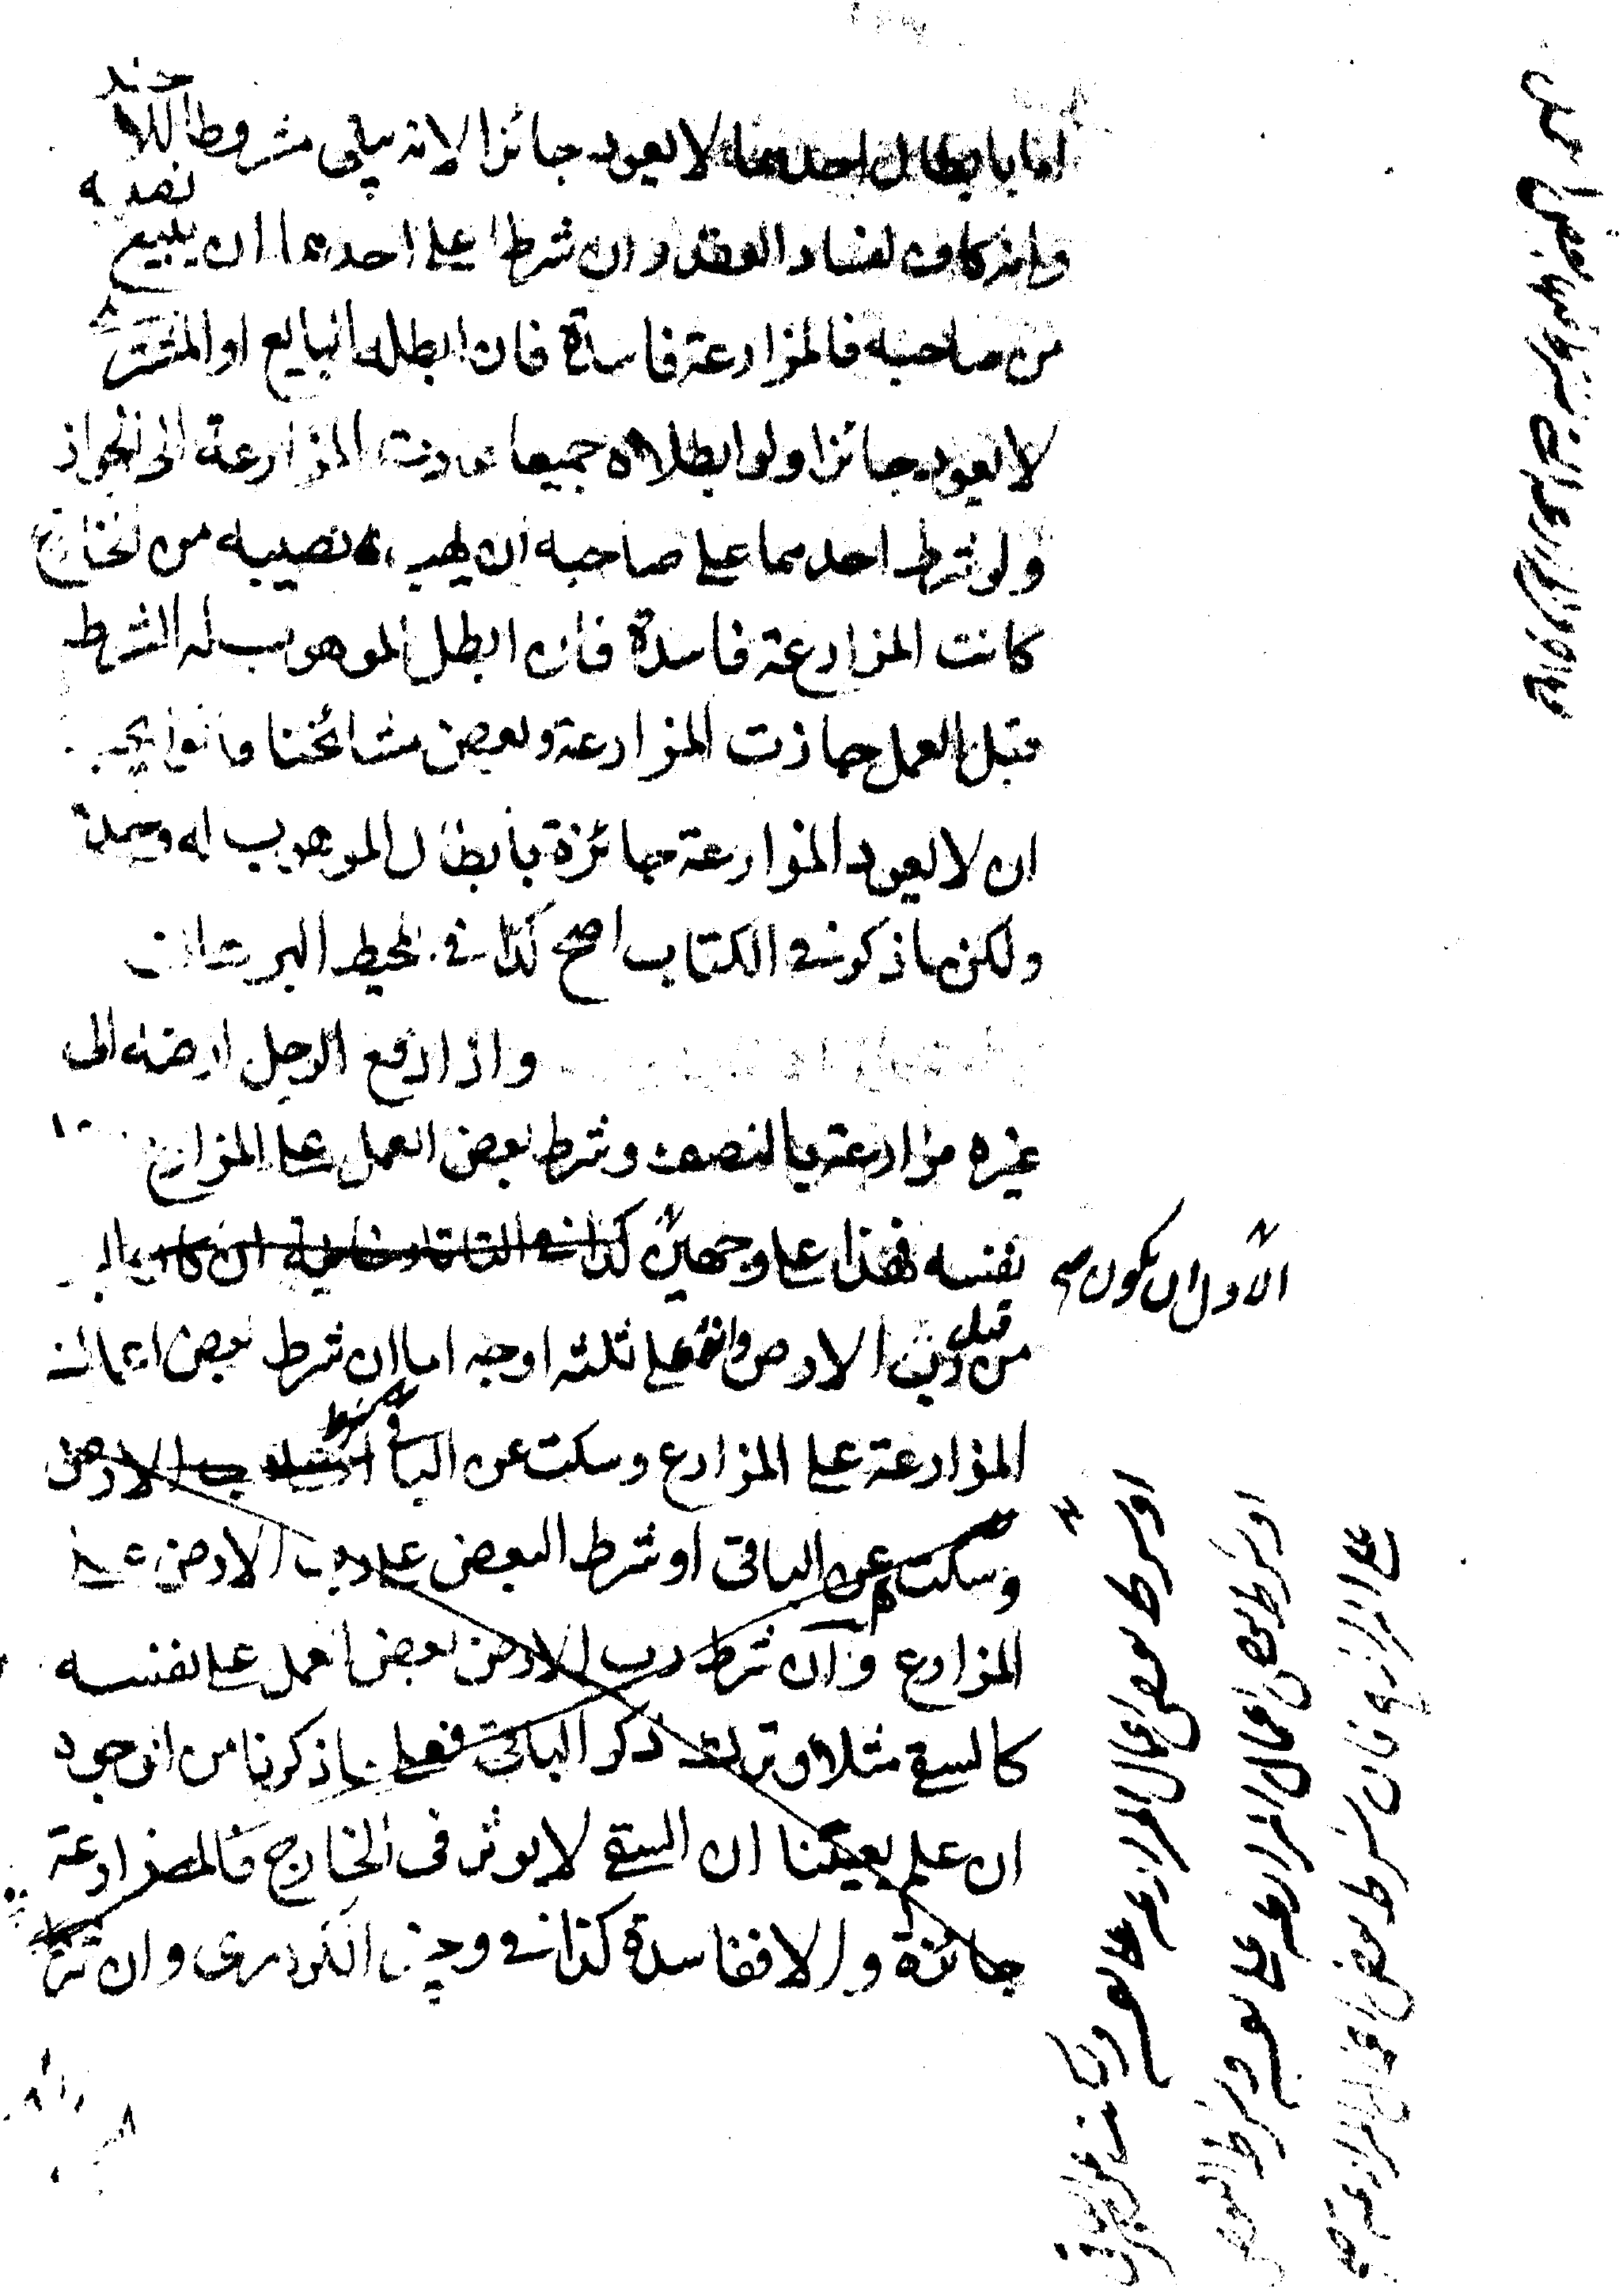 اما بابطال احدهما لا يعود جائزا لانه يبقى مشروطا للاخر
وانه كاف لفساد العقد وان شرطا على احدهما ان يبيع نصيبه
من صاحبه فالمزارعة فاسدة فان ابطله البايع او المشترى
لا يعود جائزا ولو ابطلاه جميعا عادت المزارعة الى الجواز
ولو شرط احدهما على صاحبه ان يهب له نصيبه من الخارج
كانت المزارعة فاسدة فان ابطل الموهوب له الشرط
قبل العمل جازت المزارعة وبعض مشائخنا قالوا يجب
ان لا يعود المزارعة جائزة بابطال الموهوب له وحده
ولكن ما ذكر فى الكتاب اصح كذا فى المحيط البرهانى
واذا دفع الرجل ارضه الى
غيره مزارعة بالنصف وشرط بعض العمل على المزارع
بنفسه فهذا على وجهين كذا فى التاتارخانية ان كان البذر
الاول ان يكون صح
من قبل رب الارض وانه على ثلثه اوجه اما ان شرط بعض اعمال
المزارعة على المزارع وسكت عن الباقى رب الارض
وسكت عن الباقى او شرط البعض على رب الارض
المزارع وان شرط رب الارض بعض العمل على نفسه
كالسقى مثلا وترك ذكر الباقى فعلى ما ذكرنا من الوجوه
ان علم يقينا ان السقى لا يوثر فى الخارج فالمزارعة
جائزة والا ففاسدة كذا فى وجيز الكردرى وان شرط
او شرط بعض اعمال المزارعة على نفسه وسكت عن الباقى
او شرط بعض اعمال المزارعة على نفسه وشرط البعض
على المزارع فان شرط بعض اعمال المزارعة